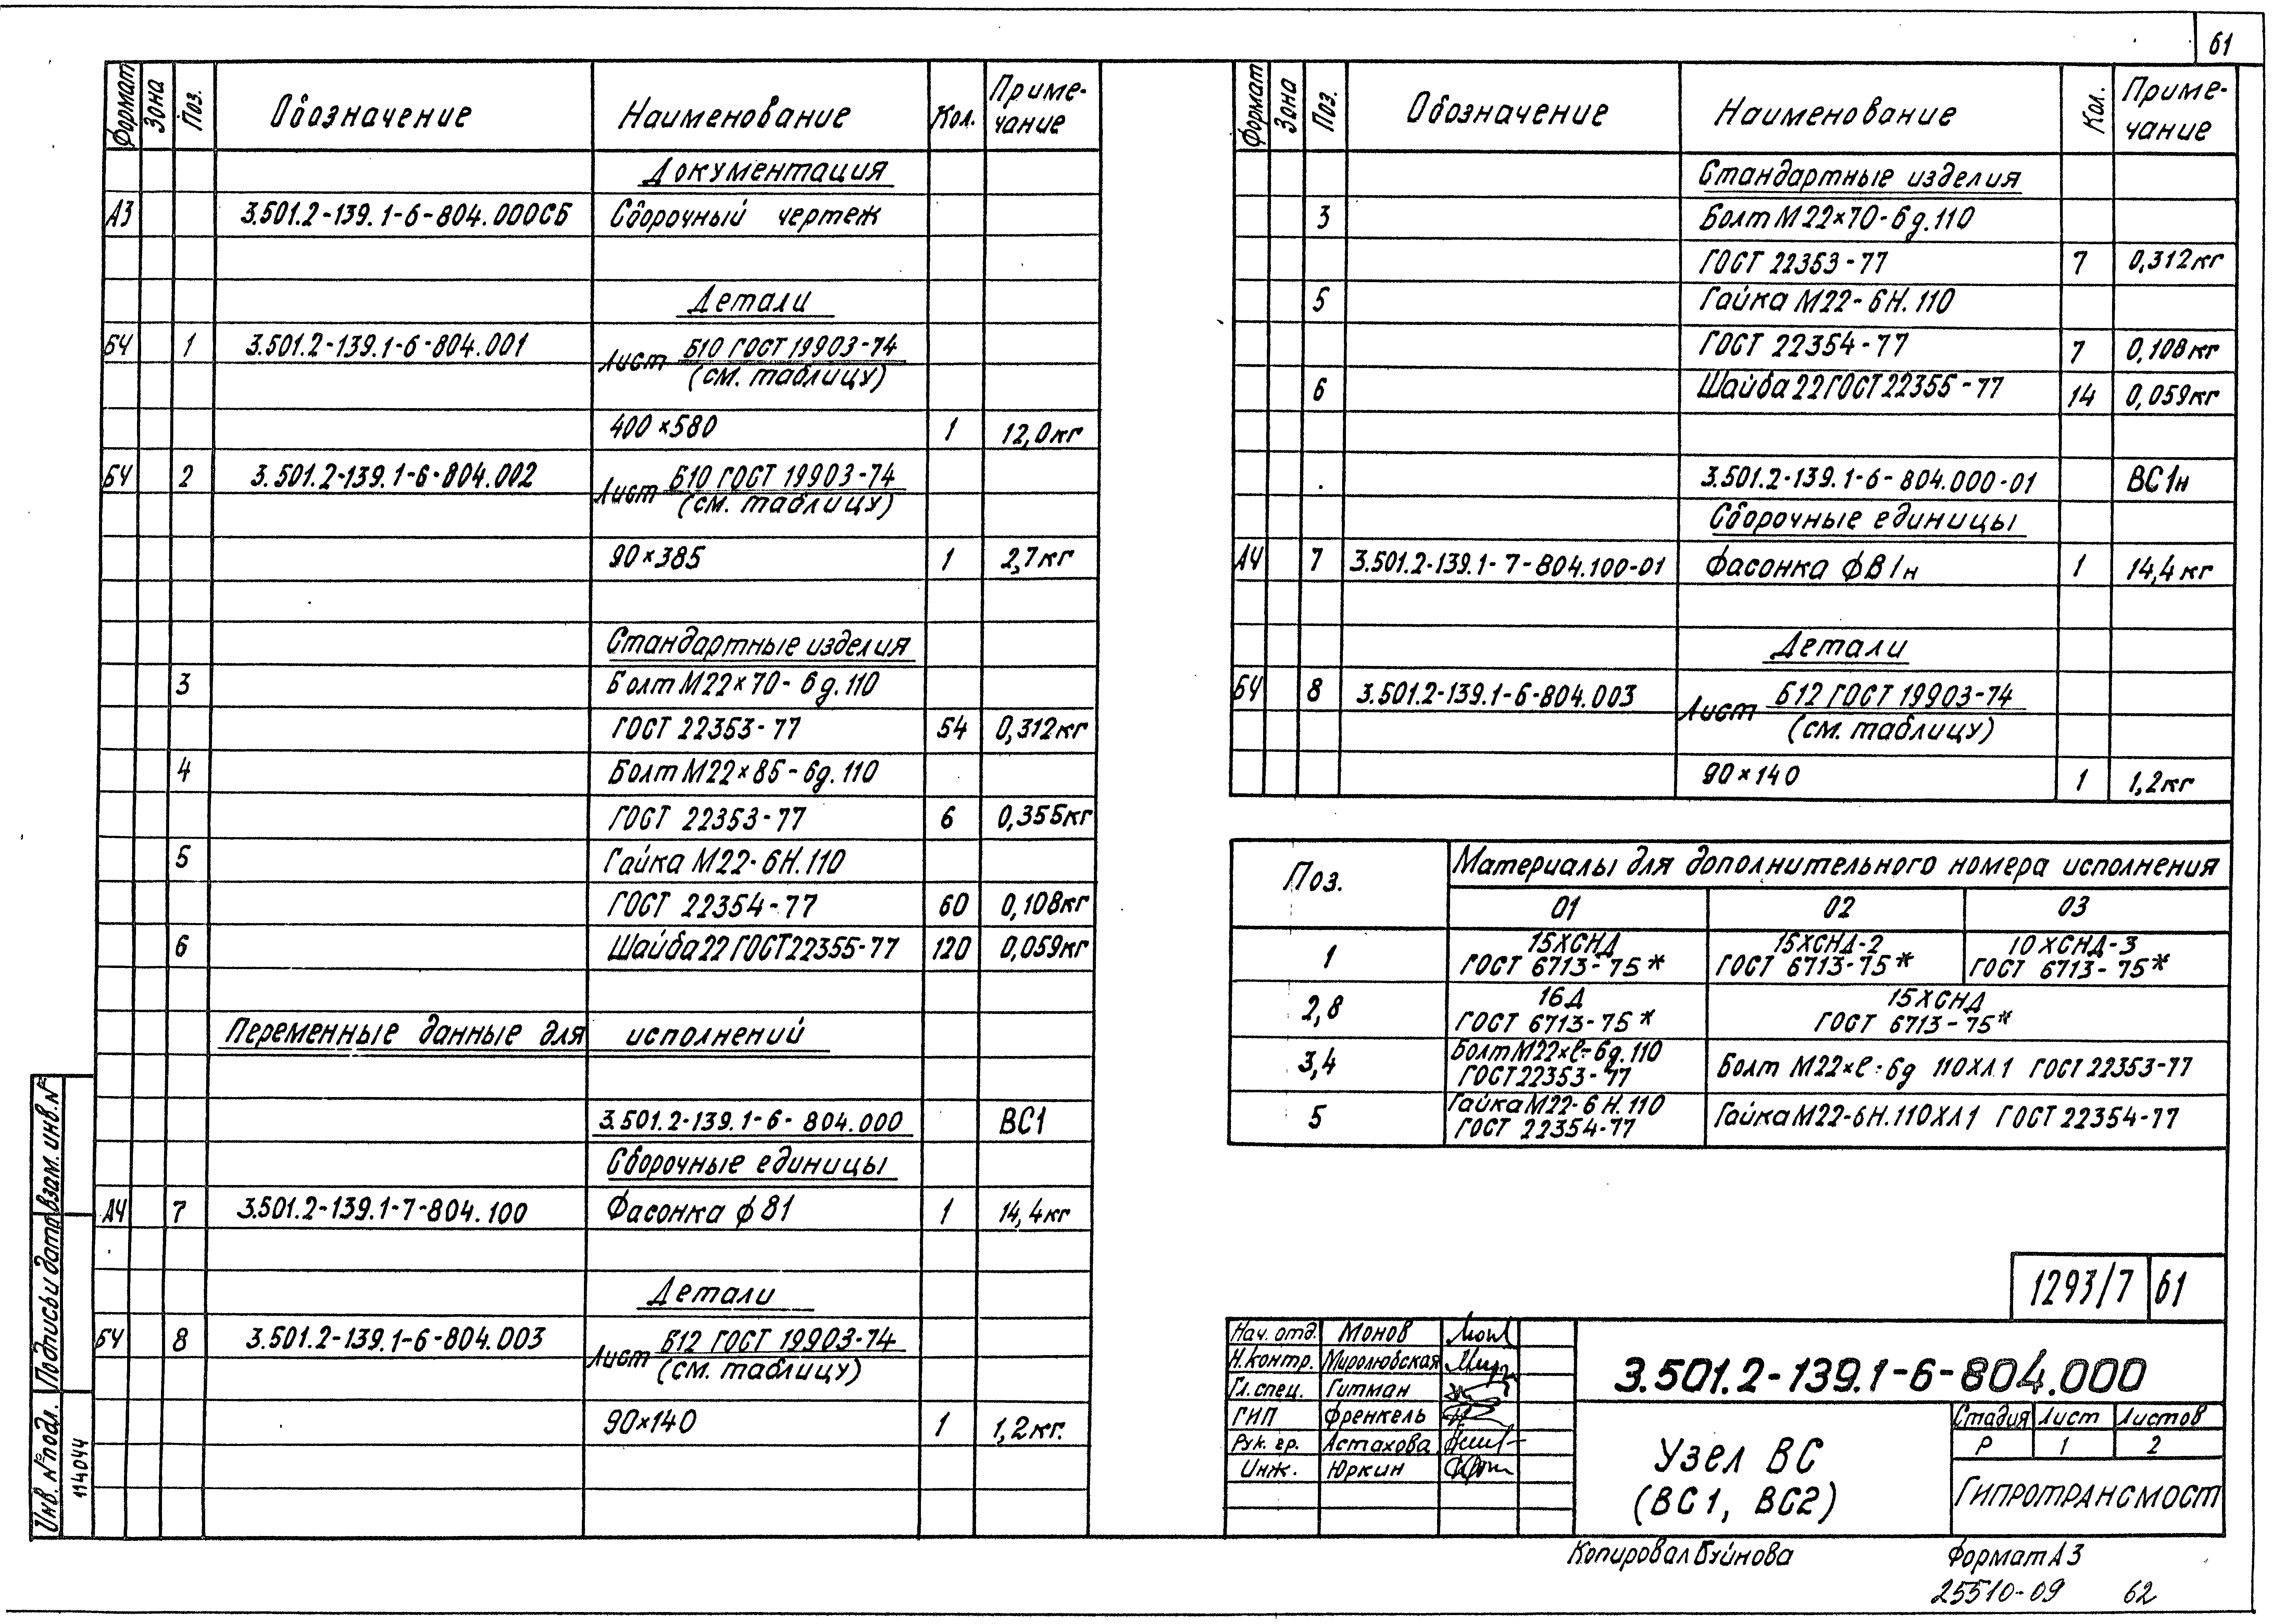 61
Формат Зона Поз. Обозначение Наименование Кол. Приме-
чание
Документация
А3 3.501.2-139.1-6-804.000СБ Сборочный чертеж
Детали
БЧ 1 3.501.2-139.1-6-804.001 Лист Б10 ГОСТ 19903-74
(см. таблицу)
400×580 1 12,0кг
БЧ 2 3.501.2-139.1-6-804.002 Лист Б10 ГОСТ 19903-74
(см. таблицу)
90×385 1 2,7кг
Стандартные изделия
3 Болт М22×70-6g.110
ГОСТ 22353-77 54 0,312кг
4 Болт М22×85-6g.110
ГОСТ 22353-77 6 0,355кг
5 Гайка М22-6Н.110
ГОСТ 22354-77 60 0,108кг
6 Шайба 22 ГОСТ 22355-77 120 0,059кг
Переменные данные для исполнений
3.501.2-139.1-6-804.000 ВС1
Сборочные единицы
А4 7 3.501.2-139.1-7-804.100 Фасонка фВ1 1 14,4кг
Детали
БЧ 8 3.501.2-139.1-6-804.003 Лист Б12 ГОСТ 19903-74
(см. таблицу)
90×140 1 1,2кг.
Формат Зона Поз. Обозначение Наименование Кол. Приме-
чание
Стандартные изделия
3 Болт М22×70-6g.110
ГОСТ 22353-77 7 0,312кг
5 Гайка М22-6Н.110
ГОСТ 22354-77 7 0,108кг
6 Шайба 22 ГОСТ 22355-77 14 0,059кг
3.501.2-139.1-6-804.000-01 ВС1н
Сборочные единицы
А4 7 3.501.2-139.1-7-804.100-01 Фасонка фВ1н 1 14,4кг
Детали
БЧ 8 3.501.2-139.1-6-804.003 Лист Б12 ГОСТ 19903-74
(см. таблицу)
90×140 1 1,2кг
Поз. Материалы для дополнительного номера исполнения
01 02 03
1 15ХСНД
ГОСТ 6713-75* 15ХСНД-2
ГОСТ 6713-75* 10ХСНД-3
ГОСТ 6713-75*
2,8 16Д
ГОСТ 6713-75* 15ХСНД
ГОСТ 6713-75*
3,4 Болт М22×ℓ-6g.110
ГОСТ 22353-77 Болт М22×ℓ-6g 110ХЛ1 ГОСТ 22353-77
5 Гайка М22-6Н.110
ГОСТ 22354-77 Гайка М22-6Н.110ХЛ1 ГОСТ 22354-77
1293/7 61
Нач. отд. Монов
Н.контр. Миролюбская
Гл. спец. Гитман
ГИП Френкель
Рук. гр. Астахова
Инж. Юркин
3.501.2-139.1-6-804.000
Узел ВС
(ВС1, ВС2)
Стадия Лист Листов
Р 1 2
ГИПРОТРАНСМОСТ
Копировал Буйнова Формат А3
25510-09 62
Инв. № подл. Подпись и дата Взам. инв. №
114044